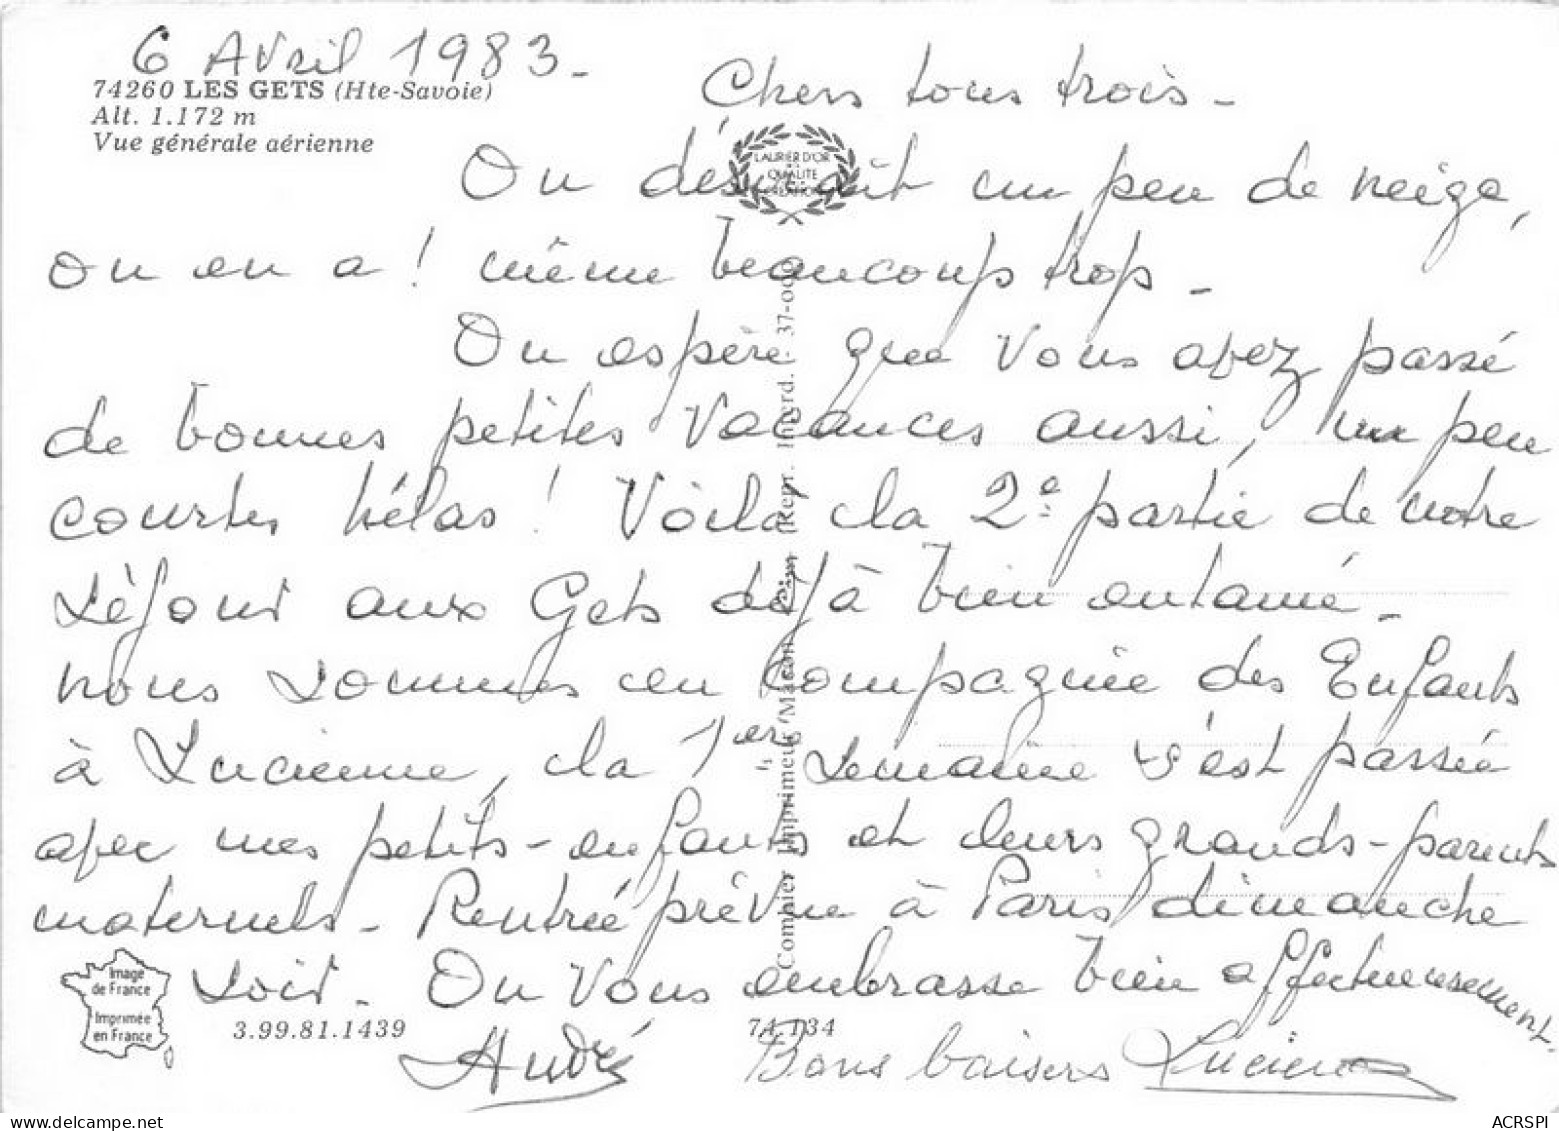 6 Avril 1983 -
74260 LES GETS (Hte-Savoie)
Alt. 1.172 m
Vue générale aérienne
Chers tous trois -
LAURIER D'OR
QUALITE
CREATION
On désirait un peu de neige,
on en a ! même beaucoup trop -
On espère que vous avez passé
de bonnes petites vacances aussi, un peu
courtes hélas ! Voilà la 2e partie de notre
séjour aux Gets déjà bien entamé -
nous sommes en compagnie des Enfants
à Lucienne, la 1ère semaine s'est passée
avec mes petits-enfants et leurs grands-parents
maternels - Rentrée prévue à Paris dimanche
soir - On vous embrasse bien affectueusement.
André Bons baisers Lucienne
Combier Imprimeur Mâcon
Image
de France
Imprimée
en France
3.99.81.1439
74.134
ACRSPI